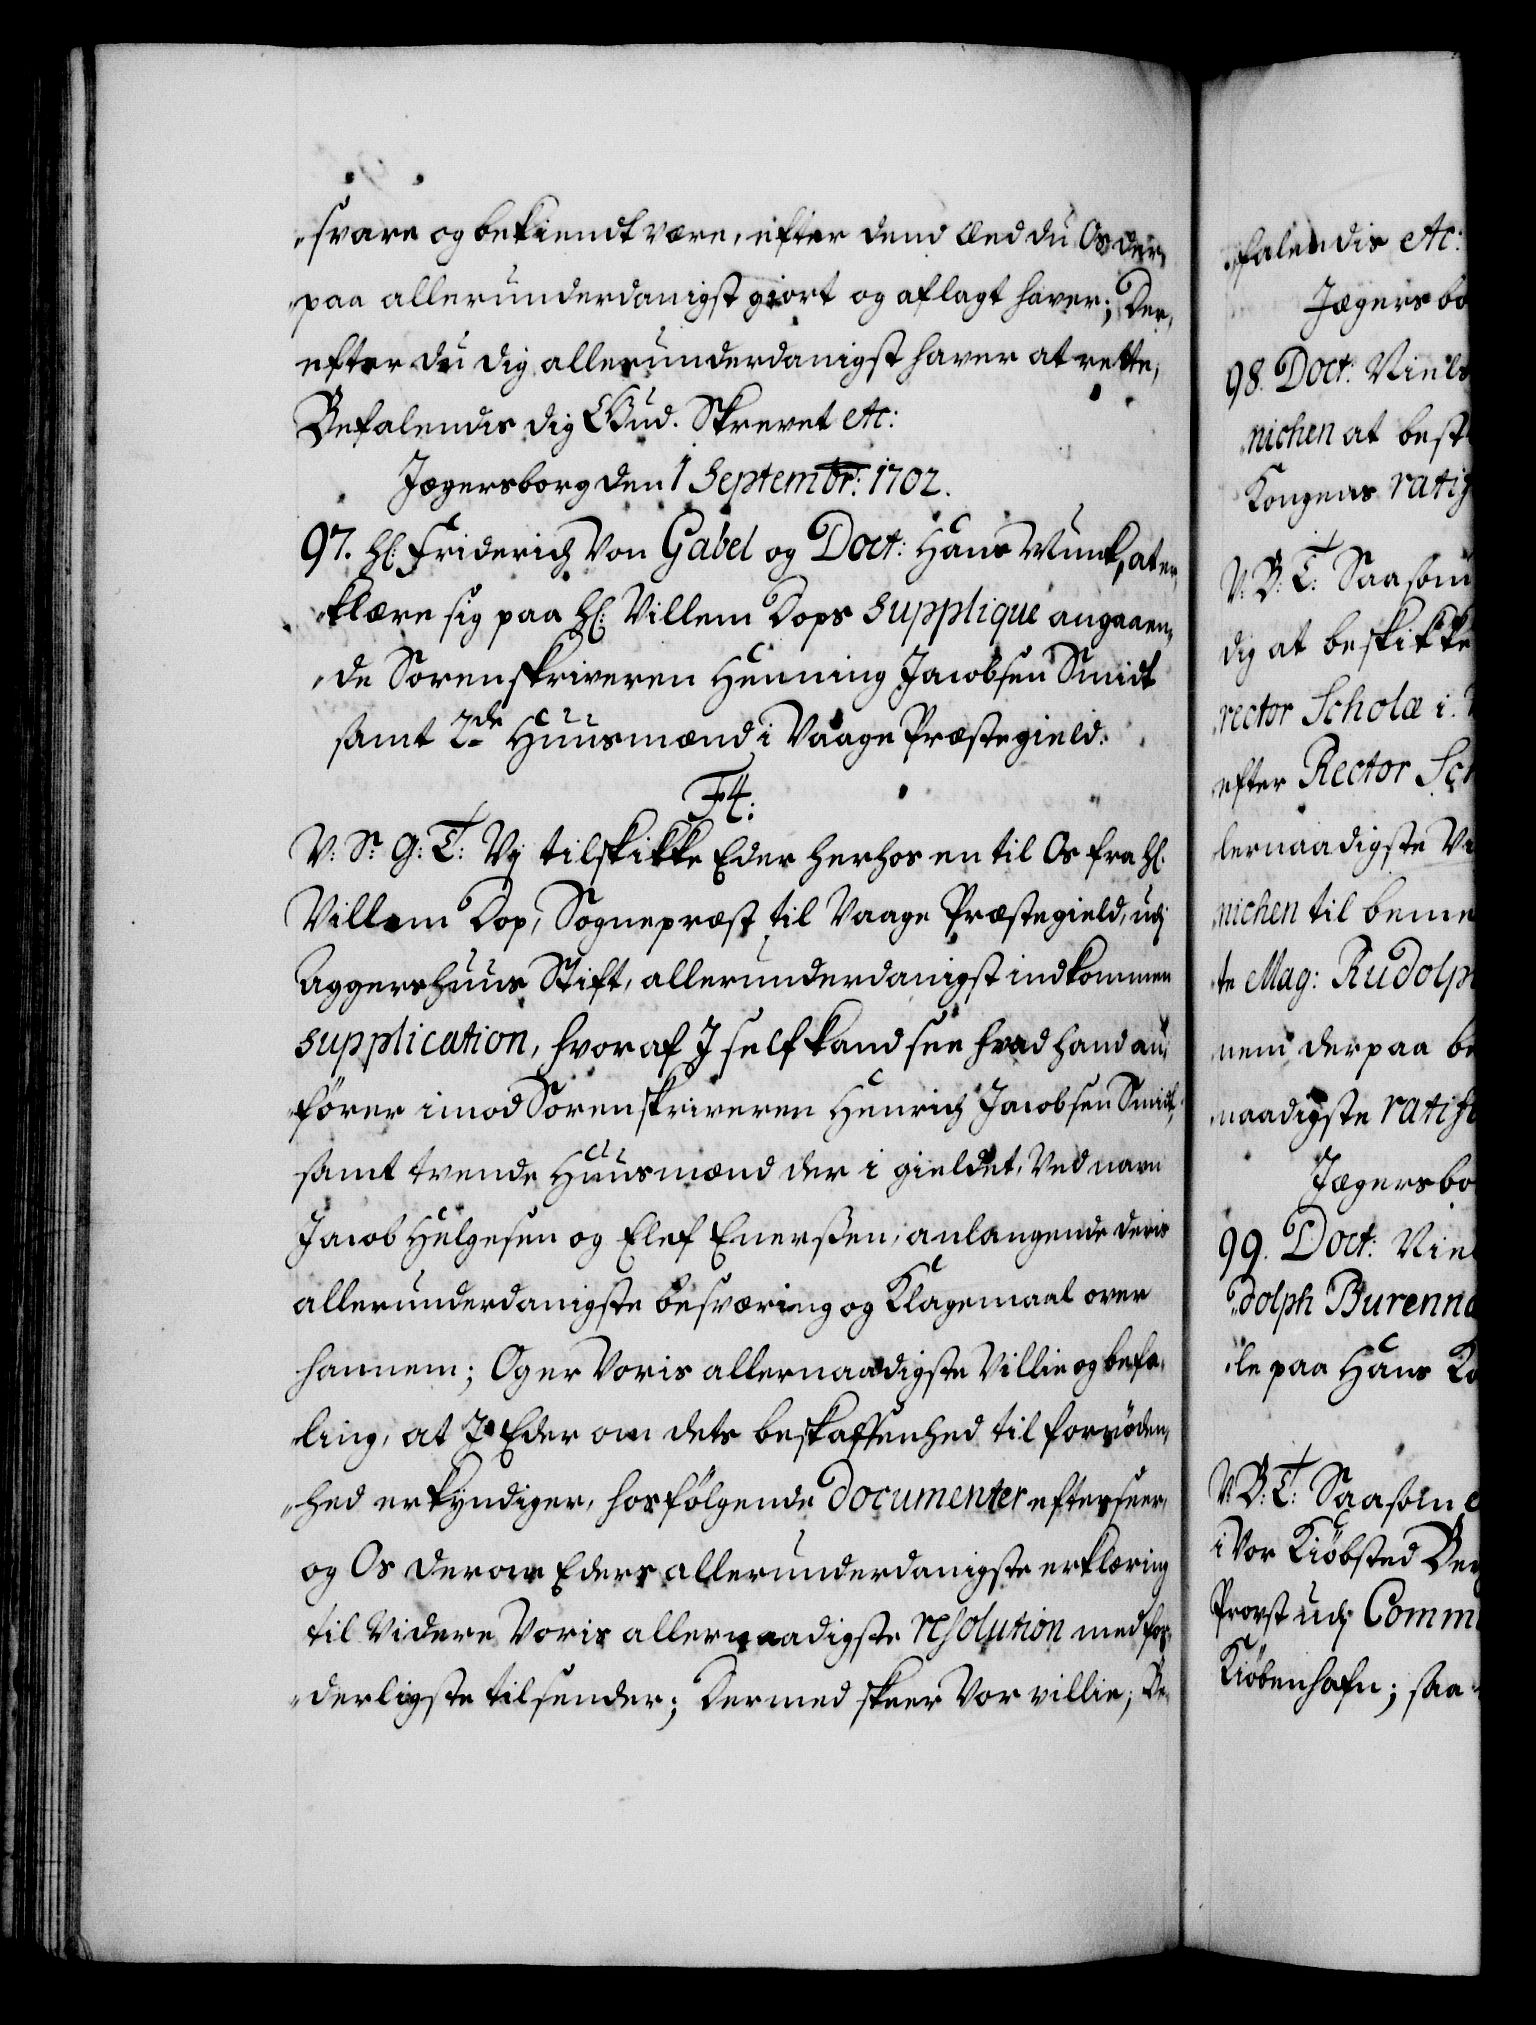 svare og bekiendt være, efter dend Æed du Os der,
paa allerunderdanigst giort og aflagt haver; Der,
efter du dig allerunderdanigst haver at rette,
Befalendis dig Gud. Skrevet etc:
Jægersborg den 1 Septembr: 1702.
97. Hl: Friderich Von Gabel og Doct: Hans Munk, at er,
klære sig paa Hl: Villem Dops Supplique angaaen,
de Sorenskriveren Henning Jacobsen Smidt
samt 2de Huusmænd i Vaage Præstegield.
F4.
V: S: G: T: Vj tilskikke Eder herhos en til Os fra Hl.
Villem Dop, Sognepræst til Vaage Præstegield, udj
Aggershuus Stift, allerunderdanigst indkommen
Supplication, hvoraf I self kand see hvad hand an,
fører imod Sorenskriveren Henrich Jacobsen Smidt,
samt tvende Huusmænd der i gieldet, Ved navn
Jacob Helgesen og Elef Enerssen, anlangende deris
allerunderdanigste besværing og Klagemaal over
hannem; Og er Voris allernaadigste Villie og befa,
ling, at I Eder om dets beskaffenhed til fornöden,
hed erkyndiger, hosfölgende Documenter efterseer,
og Os derom Eders allerunderdanigste erklæring
til Videre Voris allernaadigste resolution med for,
derligste tilsender; Dermed skeer Vor villie; Be,
falendis etc:
Jægersbo
98. Doct: Niels
nichen at best
Kongens ratif
V: B: T: Saasom
dig at beskikke
rector Scholæ i
efter Rector Sch
lernaadigste Vi
nichen til beme
te Mag: Rudolph
nem derpaa be
naadigste ratifi
Jægersbo
99. Doct: Niel
dolph Burenna
le paa Hans Ko
V: B: T: Saasom
i Vor Kiöbsted Ber
Provst udj Comm
Kiöbenhafn; saa